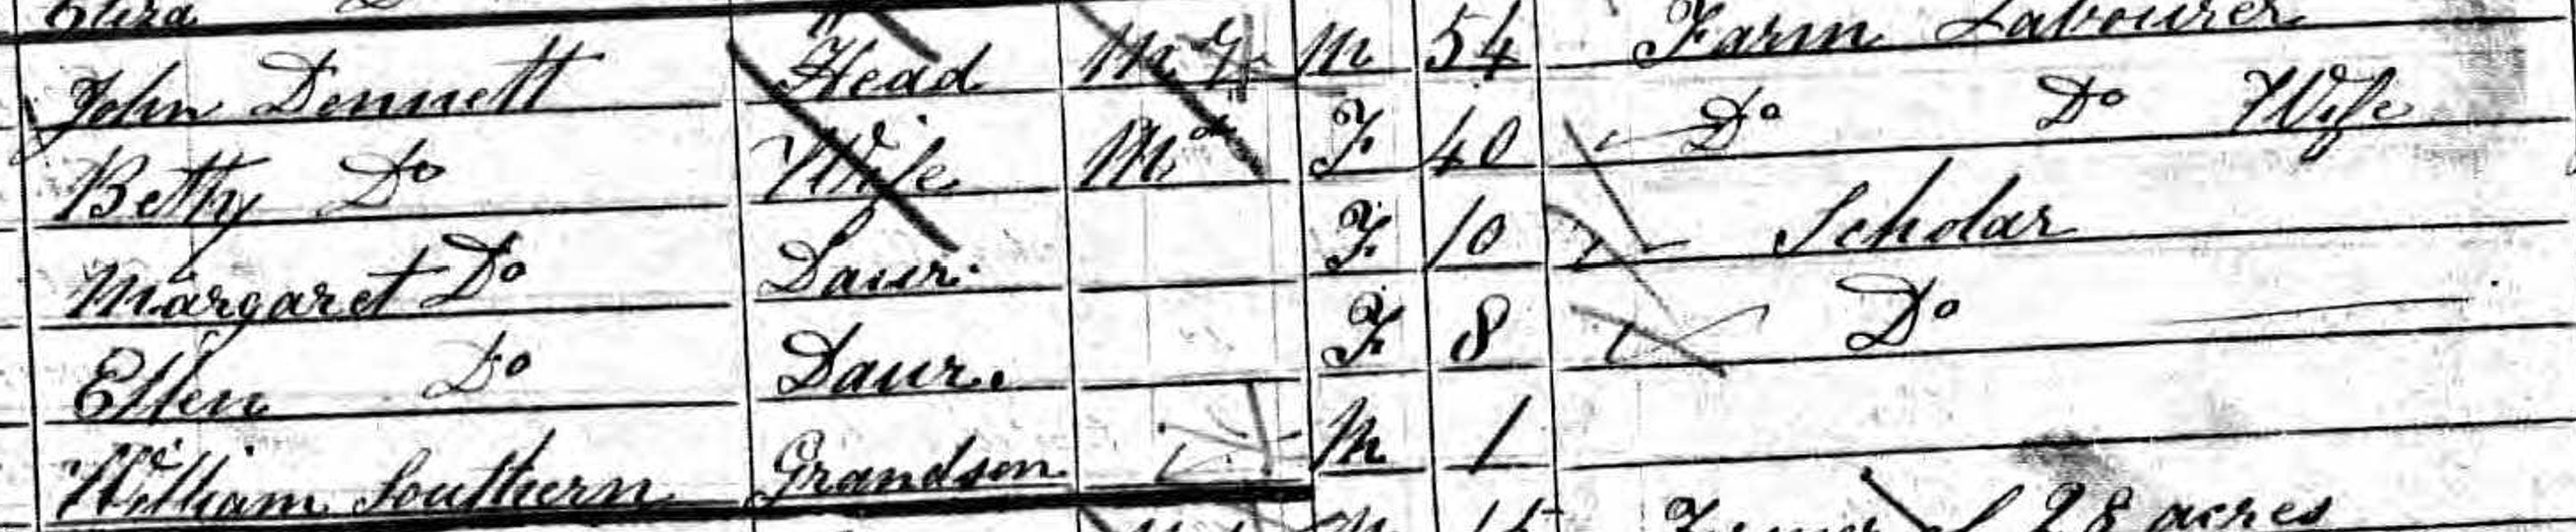 Eliza Do "
John Dennett Head Md M 54 Farm Labourer
Betty Do Wife Md F 40 Do Do Wife
Margaret Do Daur. F 10 Scholar
Ellen Do Daur. F 8 Do
William Southern Grandson M 1
28 acres